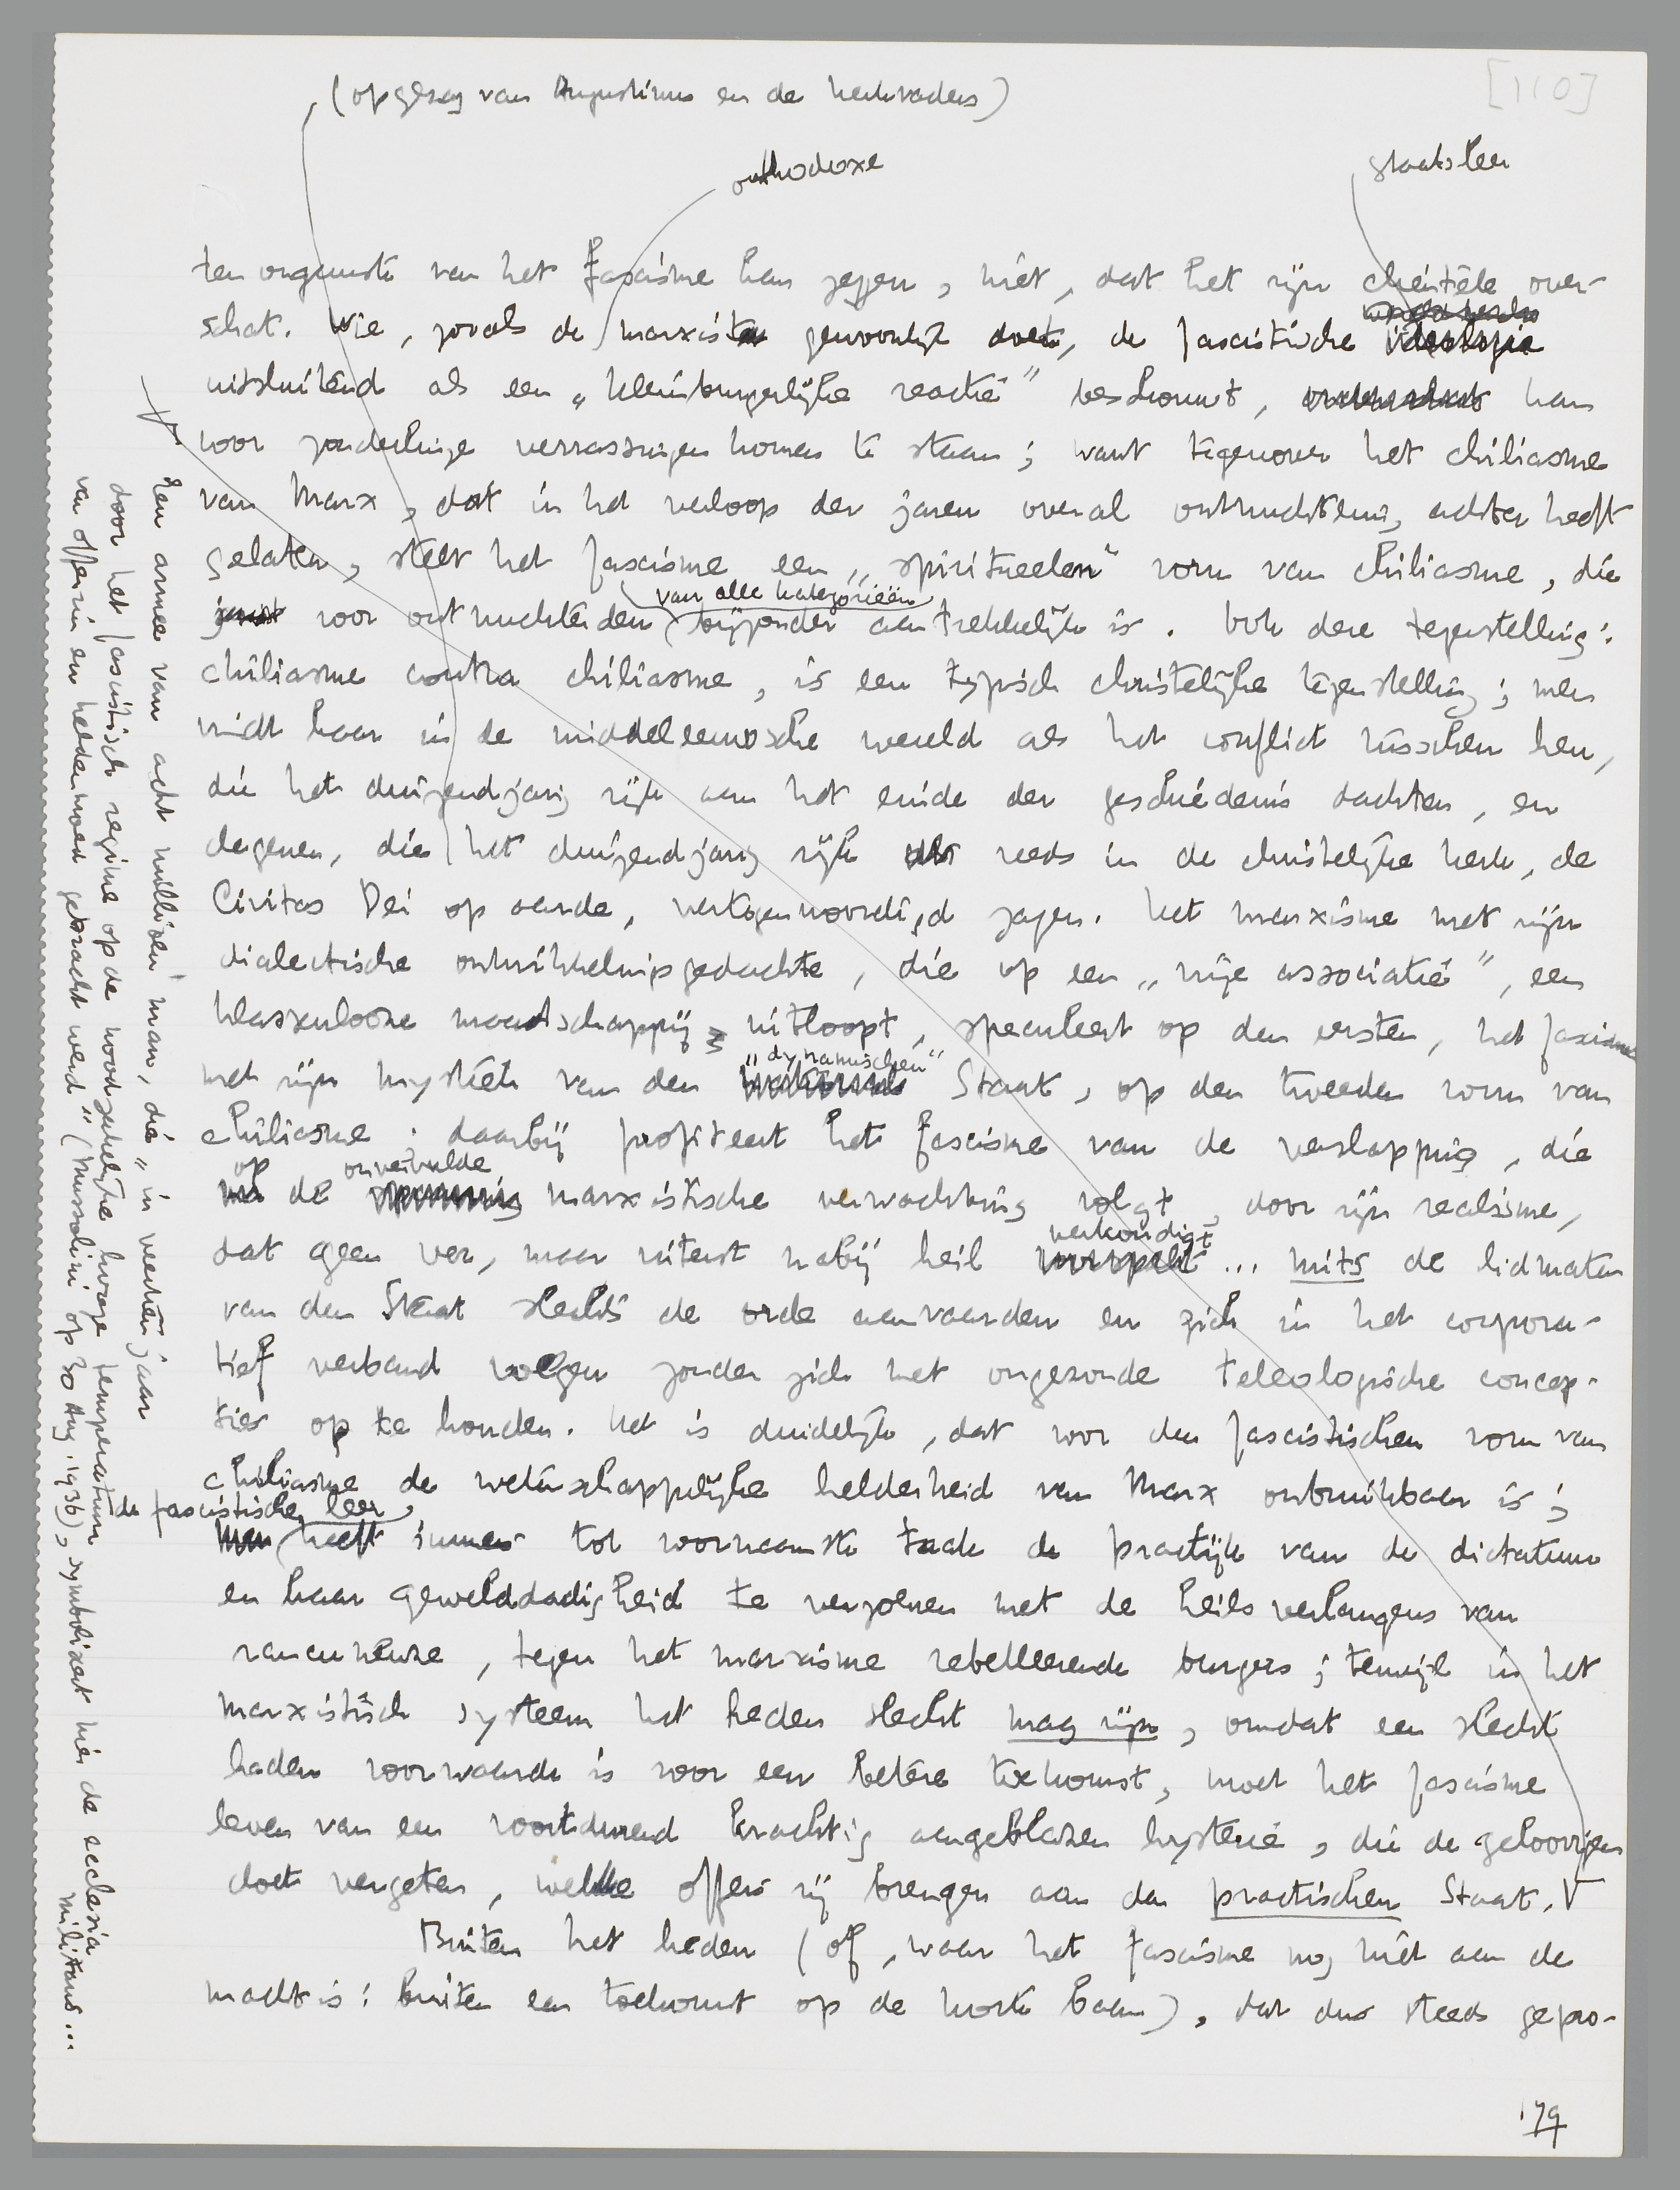 [110]
(op gezag van Augustinus en de kerkvaders)
orthodoxe
staatsleer
ten ongunste van het fascisme kan zeggen, niet, dat het zijn cliëntèle over-
schat. Wie, zooals de marxist gewoonlijk doet, de fascistische ideologie
uitsluitend als een „kleinburgerlijke reactie” beschouwt, kan
voor zonderlinge verrassingen komen te staan; want tegenover het chiliasme
van Marx, dat in het verloop der jaren overal ontnuchtering achter heeft
gelaten, stelt het fascisme een „spiritueelen” vorm van chiliasme, die
van alle kategorieën
juist voor ontnuchterden bijzonder aantrekkelijk is. Ook deze tegenstelling:
chiliasme contra chiliasme, is een typisch christelijke tegenstelling; men
vindt haar in de middeleeuwsche wereld als het conflict tusschen hen,
die het duizendjarig rijk aan het einde der geschiedenis dachten, en
degenen, die het duizendjarig rijk reeds in de christelijke kerk, de
Civitas Dei op aarde, vertegenwoordigd zagen. Het marxisme met zijn
dialectische ontwikkelingsgedachte, die op een „vrije associatie”, een
klassenlooze maatschappij uitloopt, speculeert op den eersten, het fascisme
„dynamischen”
met zijn mystiek van den Staat, op den tweeden vorm van
chiliasme; daarbij profiteert het fascisme van de verslapping, die
op onvervulde
de marxistische verwachting volgt, door zijn realisme,
verkondigt
dat geen ver, maar uiterst nabij heil ... mits de lidmaten
van den Staat slechts de orde aanvaarden en zich in het corpora-
tief verband voegen zonder zich met ongezonde teleologische concep-
ties op te houden. Het is duidelijk, dat voor den fascistischen vorm van
chiliasme de wetenschappelijke helderheid van Marx onbruikbaar is;
de fascistische leer
heeft immers tot voornaamste taak de practijk van de dictatuur
en haar gewelddadigheid te verzoenen met de heilsverlangens van
rancuneuze, tegen het marxisme rebelleerende burgers; terwijl in het
marxistisch systeem het heden slecht mag zijn, omdat een slecht
heden voorwaarde is voor een betere toekomst, moet het fascisme
leven van een voortdurend krachtig aangeblazen hysterie, die de geloovigen
doet vergeten, welke offers zij brengen aan den practischen Staat. V
Buiten het heden (of, waar het fascisme nog niet aan de
macht is: buiten een toekomst op de korte baan), dat dus steeds gepro-
179
V Een armee van acht millioen man, die „in veertien jaar
door het fascistisch regime op de noodzakelijke hooge temperatuur
van offerzin en heldenmoed gebracht werd” (Mussolini op 30 Aug. 1936), symboliseert hier de ecclesia
militans...